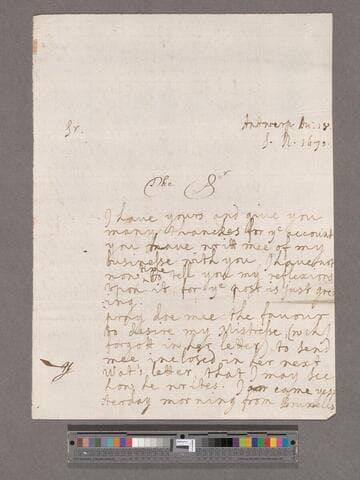 Sr.
Antwerp
S. N. 1679.
The Sr
I have yours and give you
many thanckes for ye account
you have writt mee of my
businesse with you, I have not
time
now to tell you my reflexions
upon it, for ye post is just goe
ing.
pray doe mee the favour
to desire my Mistrese, (wch I
forgott in her letter) to send
mee inclosed in her next
Watt's letter, that I may see
how he writes. I came yes
terday morning from Brussells